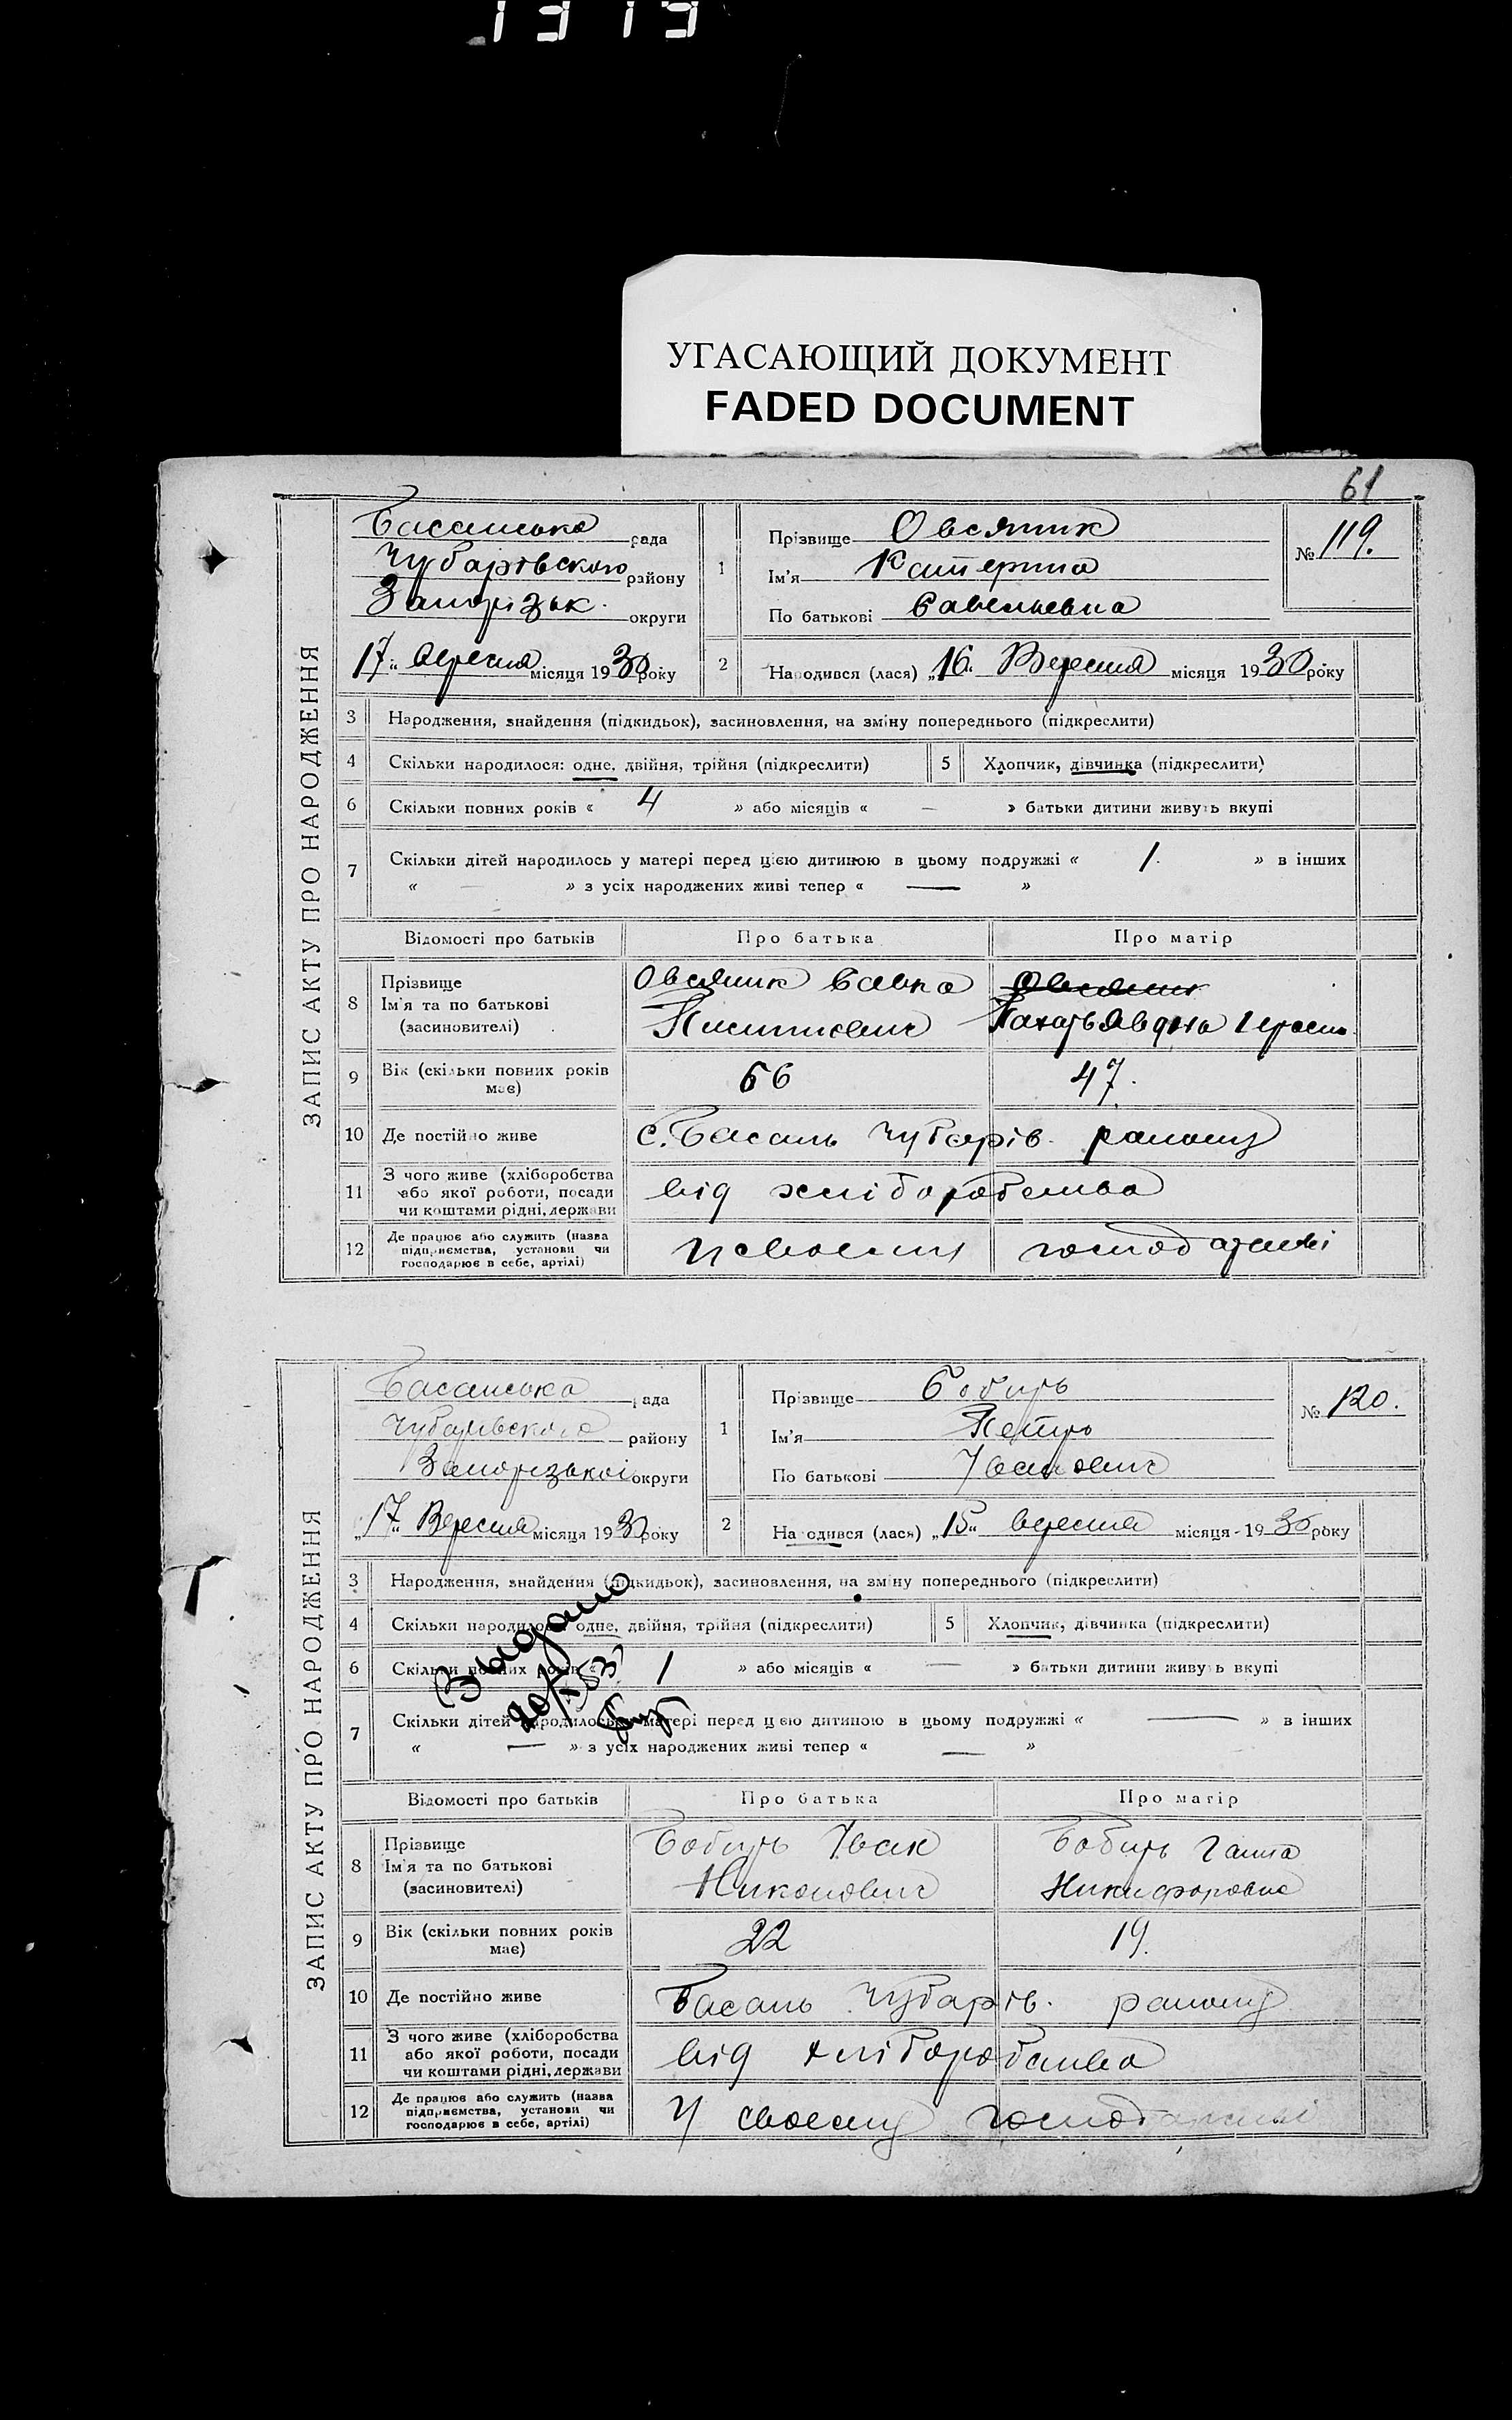 1313
УГАСАЮЩИЙ ДОКУМЕНТ
FADED DOCUMENT
61
ЗАПИС АКТУ ПРО НАРОДЖЕННЯ
Басанська рада
Чубарівського району
Запоріжськ. округи
„17“ вересня місяця 1930 року
1 Прізвище Овсяник
Ім'я Катерина
По батькові Савельевна
№ 119.
2 Народився (лася) „16“ Вересня місяця 1930 року
3 Народження, знайдення (підкидьок), засиновлення, на зміну попереднього (підкреслити)
4 Скільки народилося: одне, двійня, трійня (підкреслити) 5 Хлопчик, дівчинка (підкреслити)
6 Скільки повних років « 4 » або місяців « — » батьки дитини живуть вкупі
7 Скільки дітей народилось у матері перед цією дитиною в цьому подружжі « 1. » в інших
« — » з усіх народжених живі тепер « — »
Відомості про батьків Про батька Про матір
8 Прізвище
Ім'я та по батькові
(засновителі)
Овсяник Савка
Овсяник
9 Вік (скільки повних років
має)
66 47.
10 Де постійно живе с. Басань Чубарів. району
11 З чого живе (хліборобства
або якої роботи, посади
чи коштами рідні, держави
від хліборобства
12 Де працює або служить (назва
підприємства, установи чи
господарює в себе, артілі)
У своєму господарстві
ЗАПИС АКТУ ПРО НАРОДЖЕННЯ
Басанська рада
Чубарівського району
Запорізької округи
„17“ Вересня місяця 1930 року
1 Прізвище Бобирь
Ім'я Петро
По батькові Іванович
№ 120.
2 Народився (лася) „15“ вересня місяця 1930 року
3 Народження, знайдення (підкидьок), засиновлення, на зміну попереднього (підкреслити)
4 Скільки народилося: одне, двійня, трійня (підкреслити) 5 Хлопчик, дівчинка (підкреслити)
6 Скільки повних років « 1 » або місяців « — » батьки дитини живуть вкупі
7 Скільки дітей народилось у матері перед цією дитиною в цьому подружжі « — » в інших
« — » з усіх народжених живі тепер « — »
Відомості про батьків Про батька Про матір
8 Прізвище
Ім'я та по батькові
(засиновителі)
Бобирь Іван
Никонович
Бобирь Ганна
Никифоровна
9 Вік (скільки повних років
має)
22 19.
10 Де постійно живе Басань Чубарів. району
11 З чого живе (хліборобства
або якої роботи, посади
чи коштами рідні, держави
від хліборобства
12 Де працює або служить (назва
підприємства, установи чи
господарює в себе, артілі)
У своєму господарстві